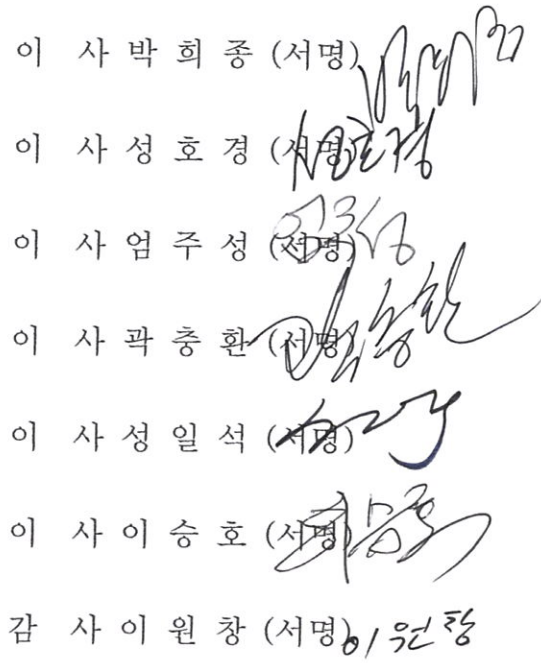 이 사 박 희 종 (서명)
이 사 성 호 경 (서명) 성호경
이 사 엄 주 성 (서명) 엄주성
이 사 곽 충 환 (서명) 곽충환
이 사 성 일 석 (서명)
이 사 이 승 호 (서명) 이승호
감 사 이 원 창 (서명) 이원창